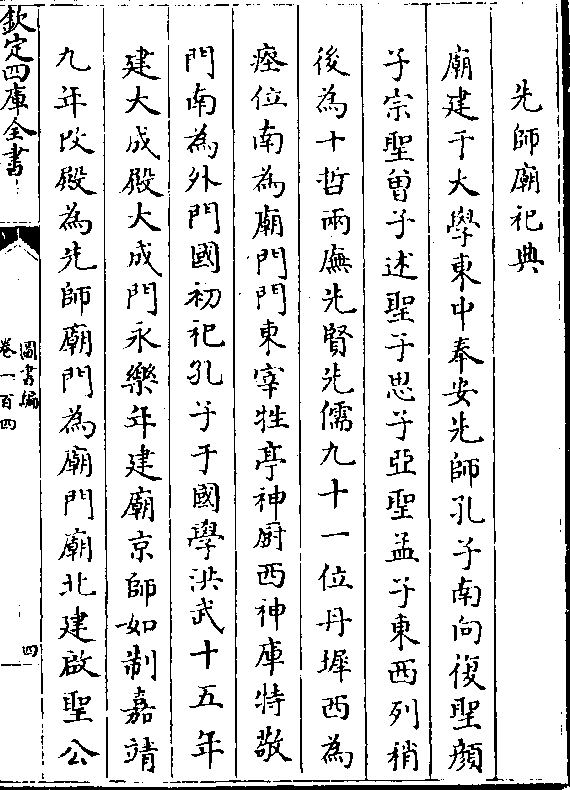 先師廟祀典
廟建于大學東中奉安先師孔子南向復聖顔
子宗聖曾子述聖子思子亞聖孟子東西列稍
後為十哲兩廡先賢先儒九十一位丹墀西為
瘞位南為廟門門東宰牲亭神厨西神庫特敬
門南為外門國初祀孔子于國學洪武十五年
建大成殿大成門永樂年建廟京師如制嘉靖
九年改殿為先師廟門為廟門廟北建啟聖公
欽定四庫全書
圖書編
卷一百四
四